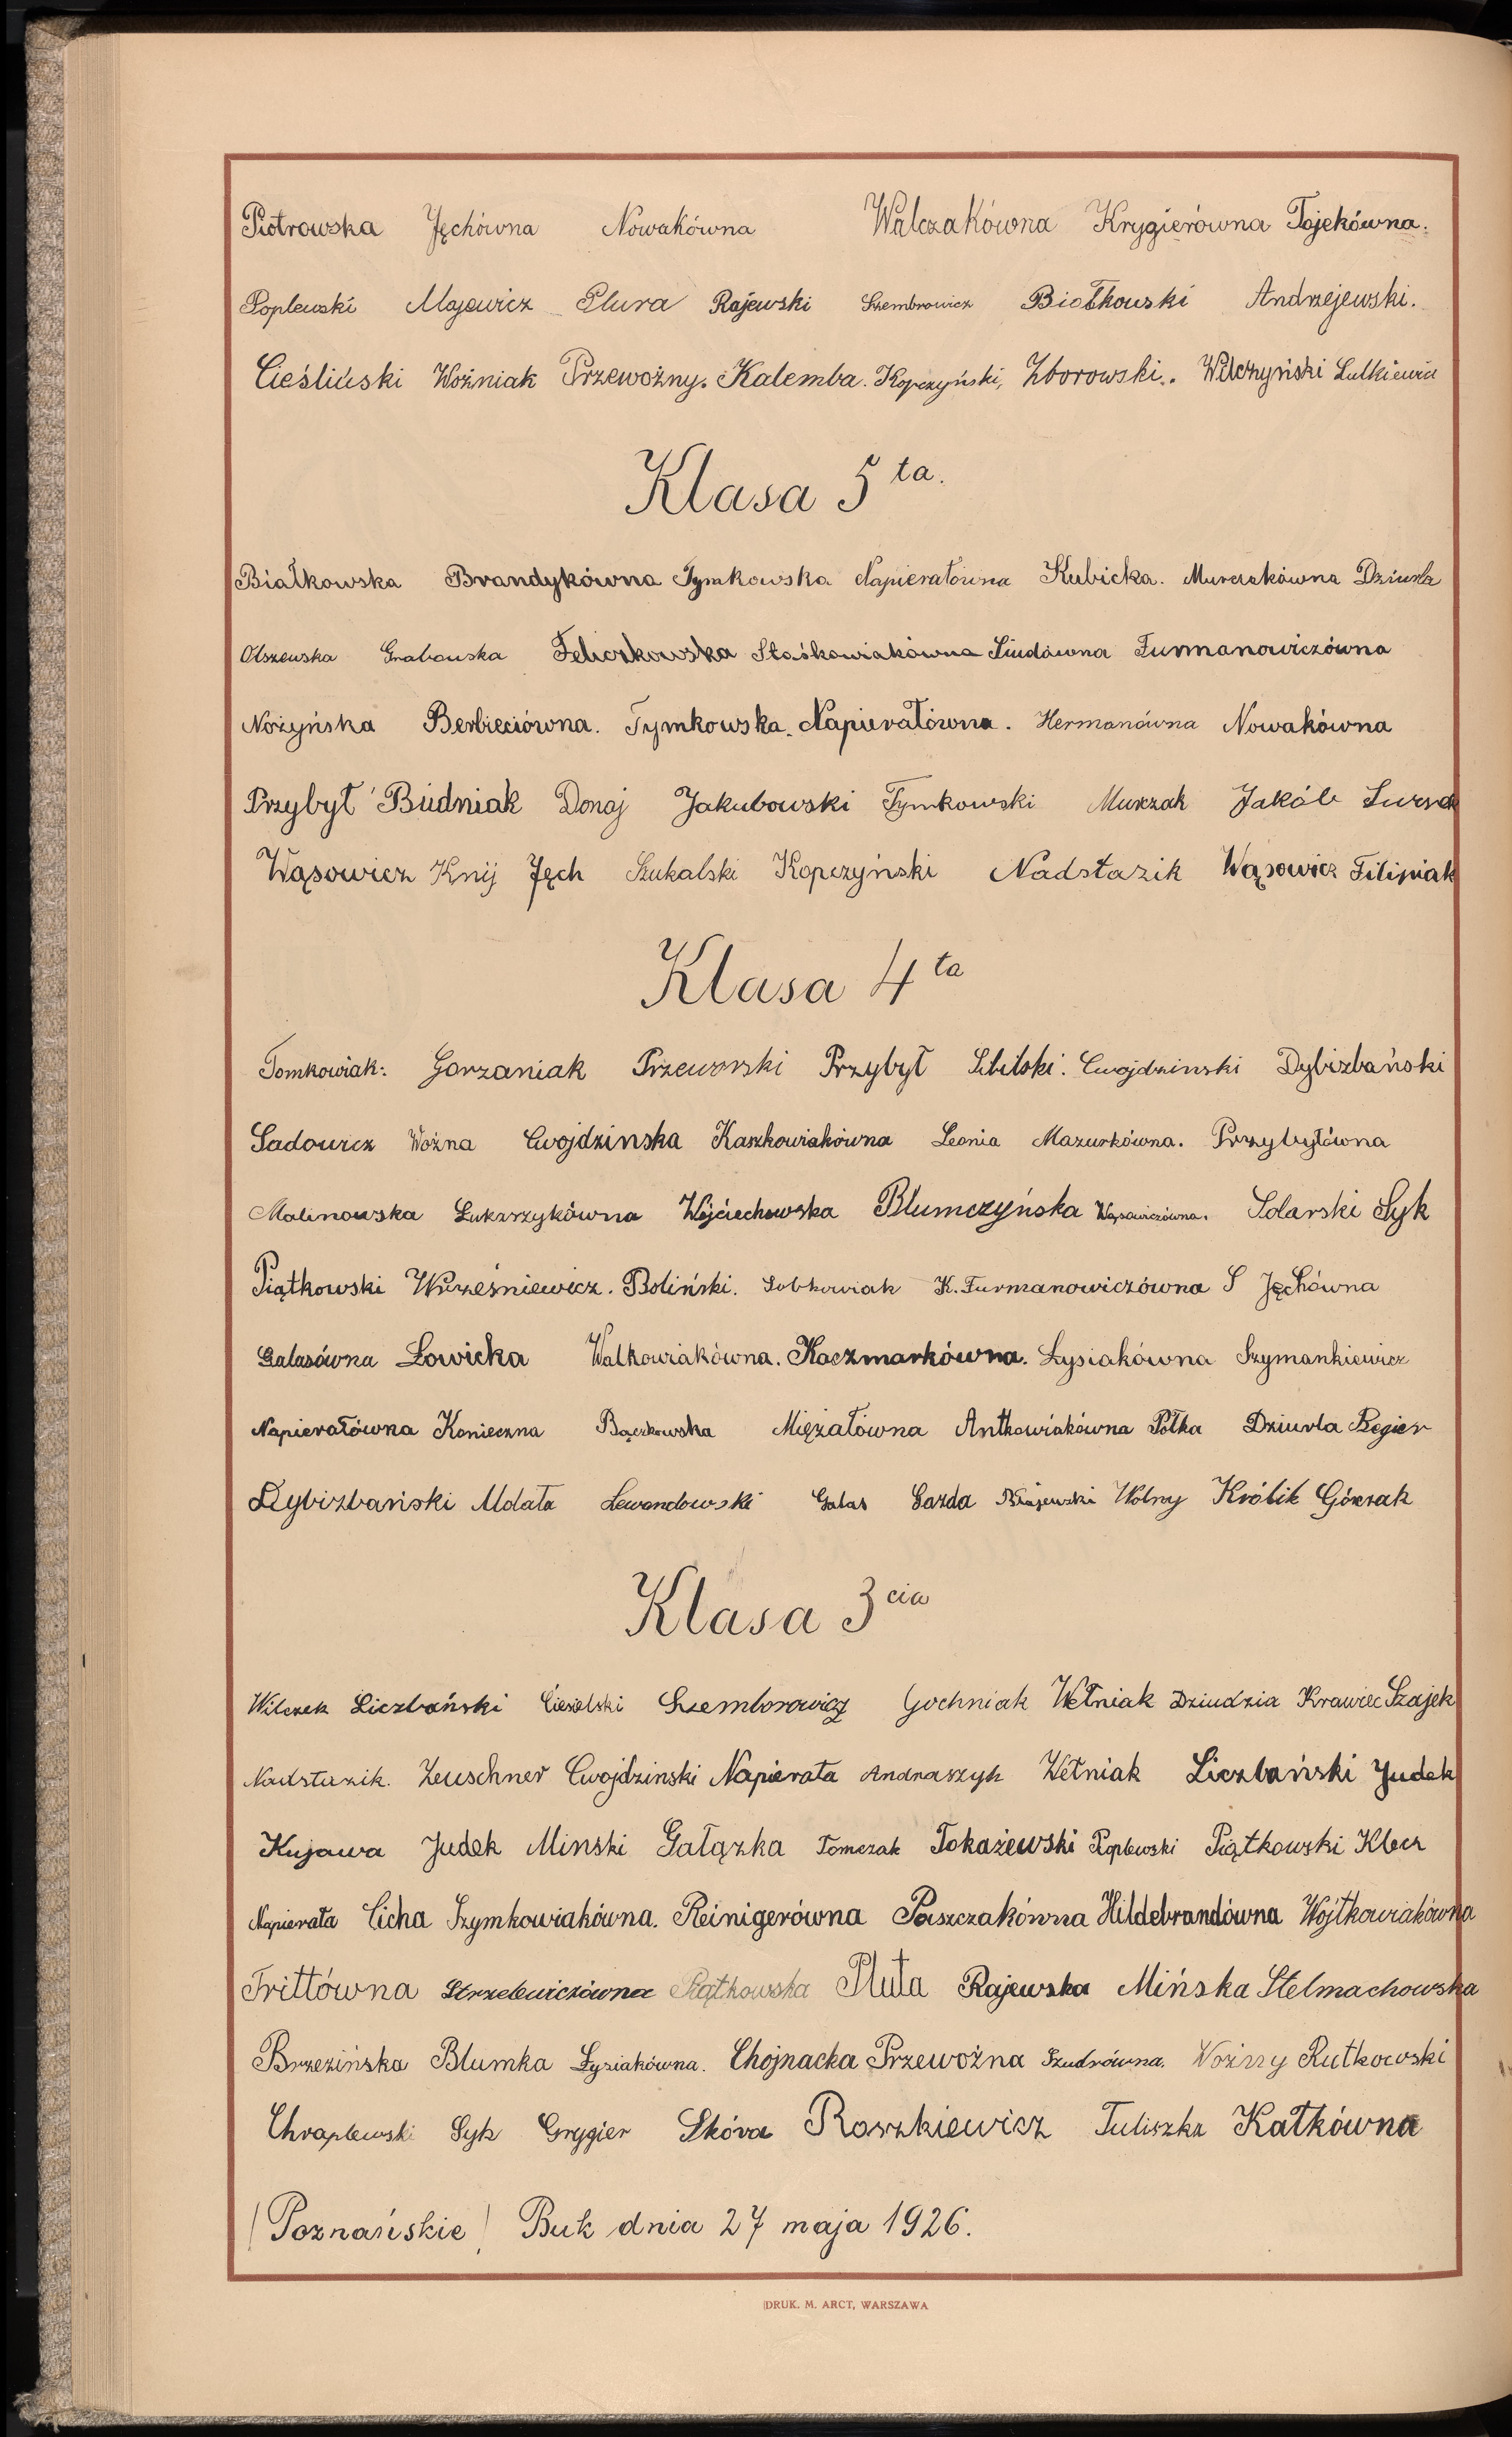 Piotrowska Jęchówna Nowakówna Walczakówna Krygierówna Tojekówna.
Poplewski Majewicz Plura Rajewski Szembrowicz Białkowski Andrzejewski.
Cieśliński Woźniak Przewoźny. Kalemba. Kopczyński, Zborowski.. Wilczyński Lutkiewicz
Klasa 5 ta.
Białkowska Brandykówna Tymkowska Napierałówna Kubicka. Murczakówna Dziurla
Olszewska Grabowska Felczkowska Staśkowiakówna Siudówna Furmanowiczówna
Nożyńska Berbieciówna. Tymkowska. Napierałówna. Hermanówna Nowakówna
Przybył Budniak Donaj Jakubowski Tymkowski Murczak Jakób
Wąsowicz Knij Jęch Szukalski Kopczyński Nadstazik Wąsowicz Filipiak
Klasa 4 ta
Tomkowiak: Gorzaniak Przeworski Przybył Sibilski. Cwojdzinski Dybizbański
Sadowicz Woźna Cwojdzinska Kaszkowiakówna Leonia Mazurkówna. Przybyłówna
Malinowska Łukarzykówna Wojciechowska Blumczyńska Wąsowiczówna. Solarski Syk
Piątkowski Wrześniewicz. Boliński. Sobkowiak K. Furmanowiczówna S Jęchówna
Galasówna Łowicka Walkowiakówna. Kaczmarkówna. Łysiakówna Szymankiewicz
Napierałówna Konieczna Bączkowska Mięzałówna Antkowiakówna Półka Dziurla Regier
Dybizbański Molata Lewandowski Galas Gazda Rajewski Wolny Królik Górczak
Klasa 3 cia
Wilczek Liczbański Ciesielski Szemborowicz Gochniak Wełniak Dziudzia Krawiec Szajek
Nadstazik. Zeuschner Cwojdzinski Napierała Andraszyk Wełniak Liczbański Judek
Kujawa Judek Minski Gałązka Tomczak Tokażewski Poplewski Piątkowski Klecz
Napierała Cicha Szymkowiakówna. Reinigerówna Paszczakówna Hildebrandówna Wojtkowiakówna
Trittówna Strzelewiczówna Piątkowska Pluta Rajewska Mińska Stelmachowska
Brzezińska Blumka Łysiakówna. Chojnacka Przewoźna Szudrówna. Woźny Rutkowski
Chraplewski Syk Grygier Skóra Roszkiewicz Tuliszka Katkówna
/Poznańskie/ Buk dnia 27 maja 1926.
DRUK. M. ARCT, WARSZAWA